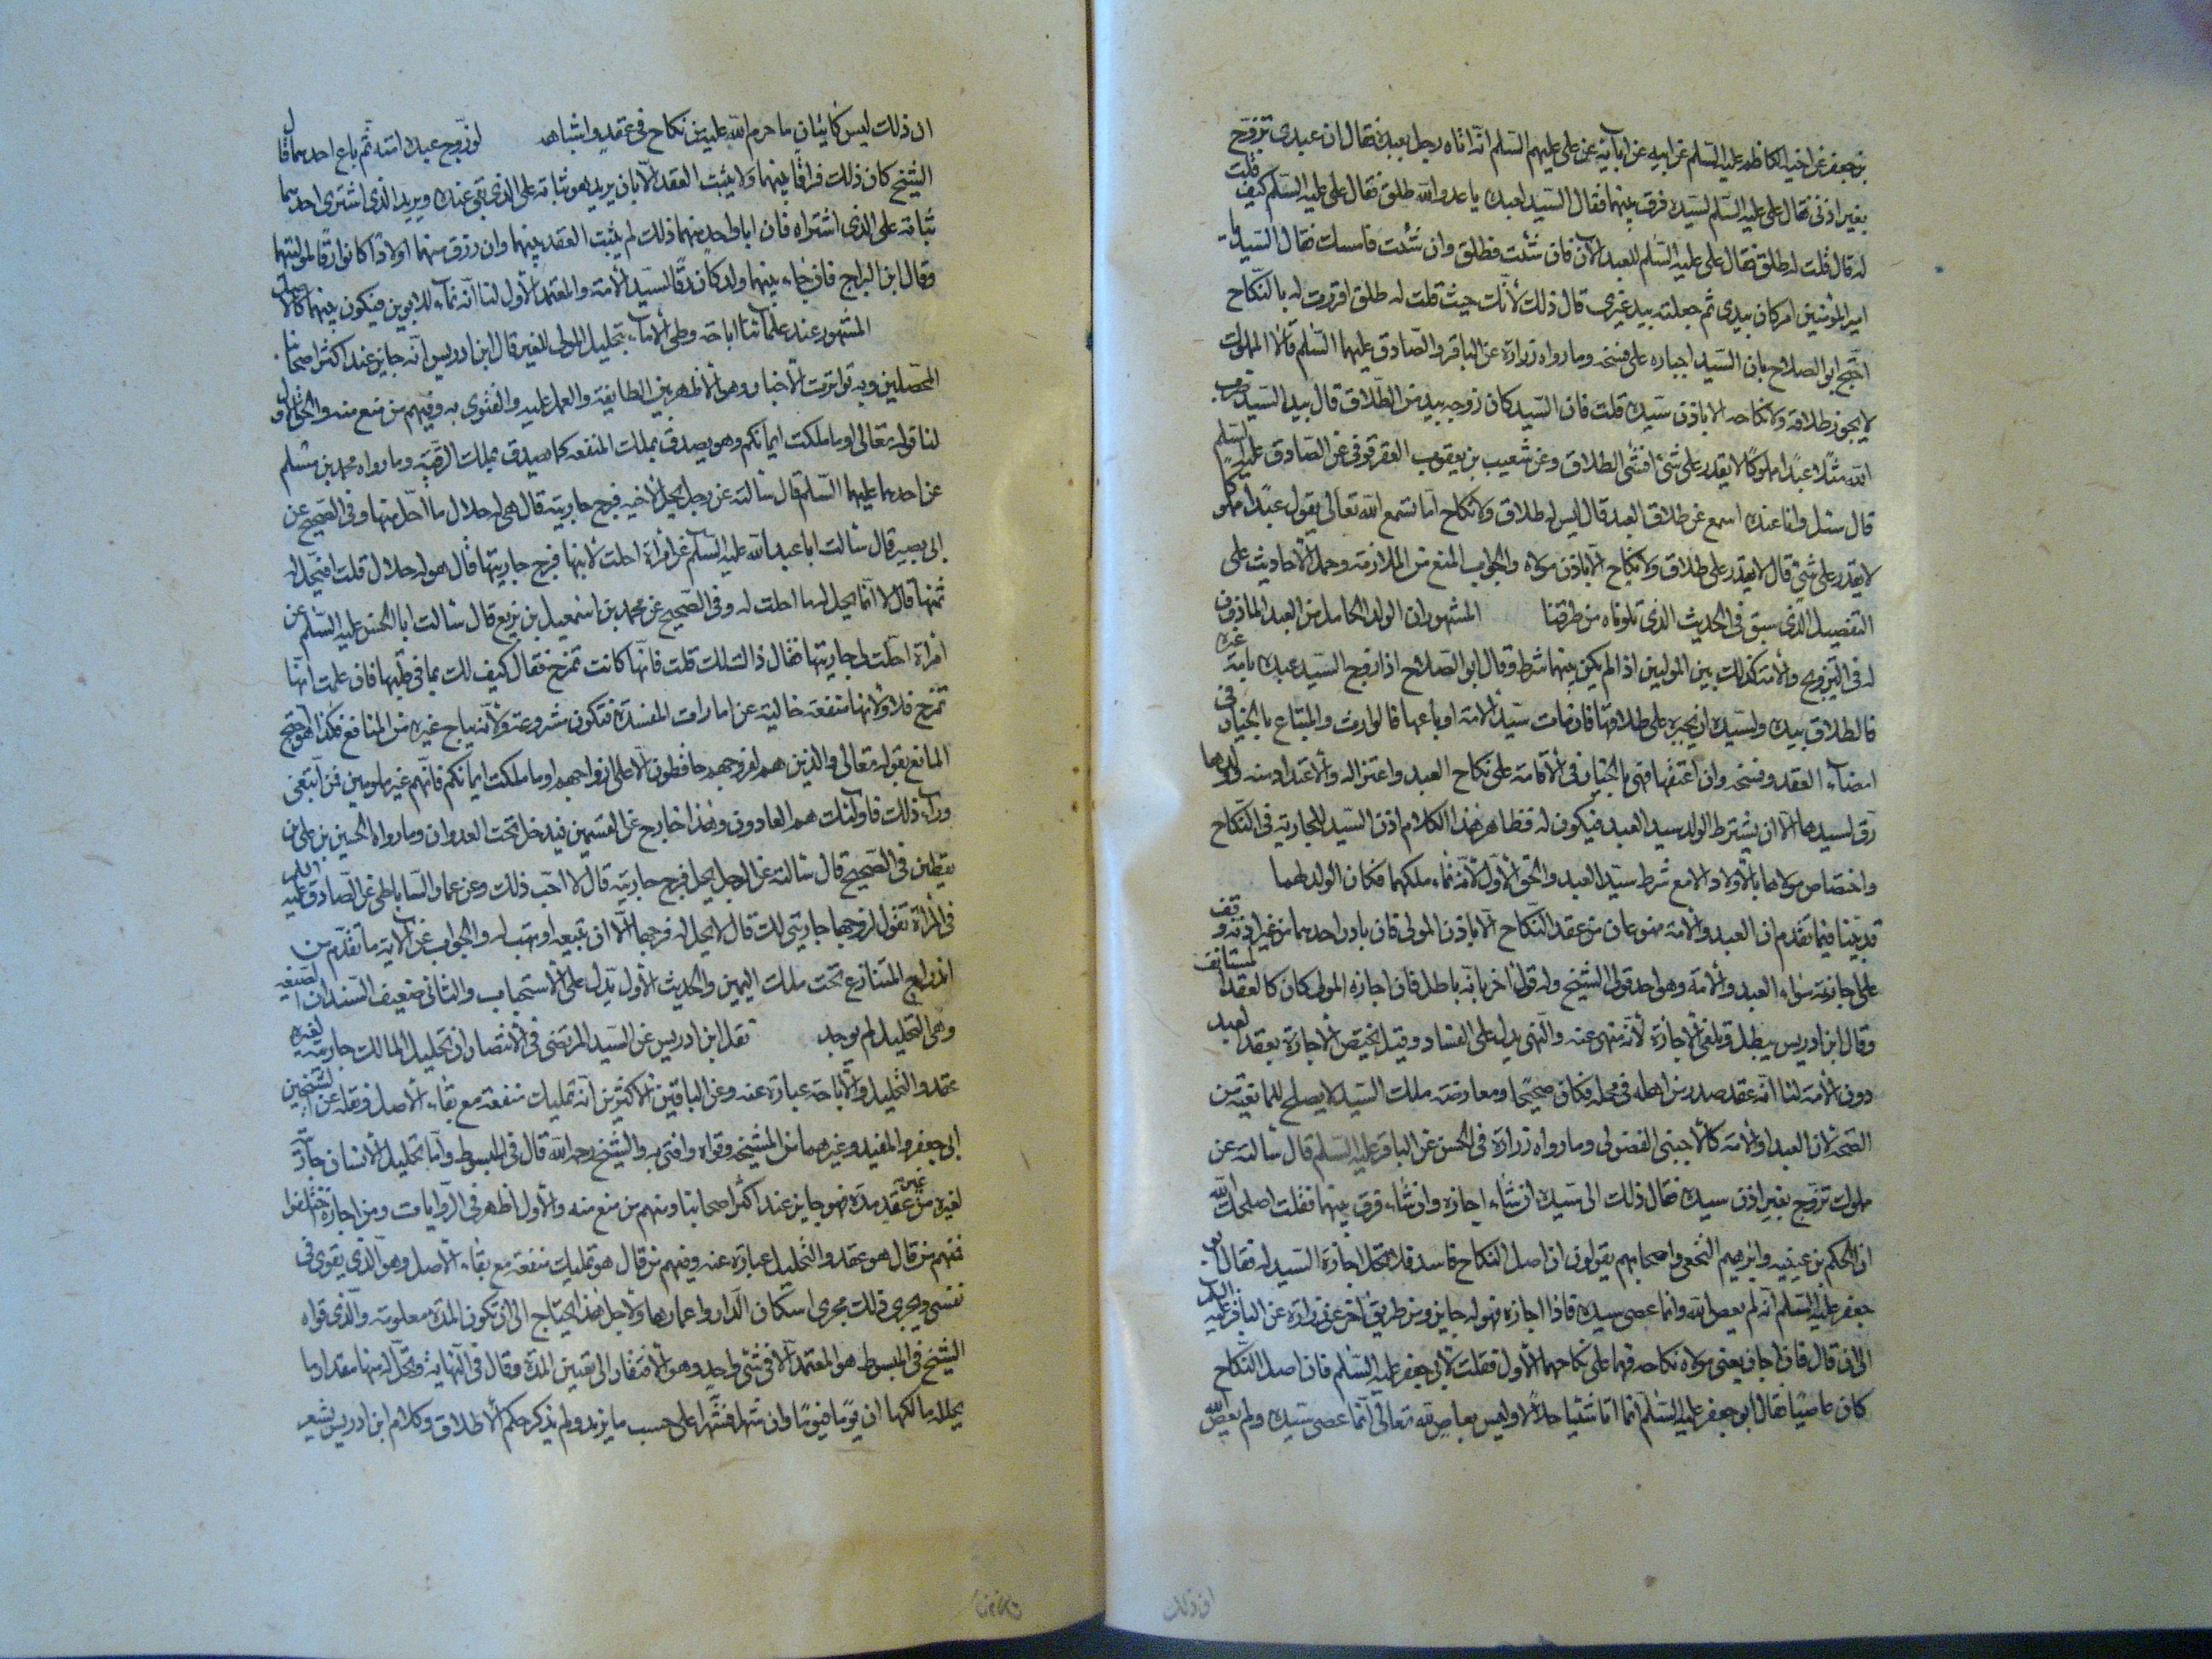 بن جعفر عن اخيه الكاظم عليه السلم عن ابيه عن ابآئه عن على عليهم السلم انه اتاه رجل بعبده فقال ان عبدى تزوج
بغير اذنى فقال على عليه السلم لسيده فرق بينهما فقال السيد لعبده يا عدو الله طلق فقال على عليه السلم كيف قلت
له قال قلت له طلق فقال على عليه السلم للعبد الآن فان شئت فطلق وان شئت فامسك فقال السيد يا
امير المؤمنين امر كان بيدى ثم جعلته بيد غيرى قال ذلك لأنك حيث قلت له طلق اقررت له بالنكاح
احتج ابو الصلاح بان للسيد اجباره على فسخه وما رواه زرارة عن الباقر والصادق عليهما السلم قالا المملوك
لا يجوز طلاقه ولا نكاحه الا باذن سيده قلت فان السيد كان زوجه بيد من الطلاق قال بيد السيد ضرب
الله مثلا عبدا مملوكا لا يقدر على شئ افشئ الطلاق وعن شعيب بن يعقوب العقرقوفى عن الصادق عليه السلم
قال سئل وانا عنده اسمع عن طلاق العبد قال ليس له طلاق ولا نكاح اما تسمع الله تعالى يقول عبدا مملوكا
لا يقدر على شئ قال لا يقدر على طلاق ولا نكاح الا باذن مولاه والجواب المنع من الملازمة وحمل الأحاديث على
التفصيل الذى سبق فى الحديث الذى تلوناه من طرقنا المشهور ان الولد الحاصل من العبد الماذون
له فى التزويج والأمة كذلك بين الموليين اذا لم يكن بينهما شرط وقال ابو الصلاح اذا زوج السيد عبده بامة غيره
فالطلاق بيده ولسيده ان يجبره على طلاقها فان مات سيد الأمة او باعها فالوارث والمبتاع بالخيار فى
امضآء العقد وفسخه وان اعتقها فهى بالخيار فى الأقامة على نكاح العبد واعتزاله والأعتداد منه وولدها
رق لسيدها الا ان يشترط الولد سيد العبد فيكون له فظاهر هذا الكلام اذن السيد للجارية فى النكاح
واختصاص مولاها بالأولاد الا مع شرط سيد العبد والحق الأول لأنه نمآء ملكهما فكان الولد لهما
قد بينا فيما تقدم ان العبد والأمة ممنوعان من عقد النكاح الا باذن المولى فان بادر احدهما من غير اذنه وقف
على اجازته سوآء العبد والأمة وهو احد قولى الشيخ وله قول اخر بانه باطل فان اجازه المولى كان كالعقد المستانف
وقال ابن ادريس يبطل ويلغى الأجازة لأنه منهى عنه والنهى يدل على الفساد وقيل يختص الأجازة بعقد العبد
دون الأمة لنا انه عقد صدر من اهله فى محله فكان صحيحا ومعارضة ملك السيد لا يصلح للمانعية من
الصحة لان العبد او الأمة كالأجنبى الفضولى وما رواه زرارة فى الحسن عن الباقر عليه السلم قال سالته عن
مملوك تزوج بغير اذن سيده فقال ذلك الى سيده ان شاء اجازه وان شاء فرق بينهما فقلت اصلحك الله
ان الحكم بن عيينه وابرهيم النخعى واصحابهم يقولون ان اصل النكاح فاسد فلا تحل اجازة السيد له فقال ابو
جعفر عليه السلم انه لم يعص الله وانما عصى سيده فاذا اجازه فهو له جايز ومن طريق اخر عن زرارة عن الباقر عليه السلم
الى ان قال فان اجاز يعنى مولاه نكاحه فهما على نكاحهما الأول فقلت لأبى جعفر عليه السلم فان اصل النكاح
كان عاصيا فقال ابو جعفر عليه السلم انما اتا شيئا حلالا وليس بعاص لله تعالى انما عصى سيده ولم يعص الله
ان ذلك
ان ذلك ليس كاتيان ما حرم الله عليه من نكاح فى عقده واشباهه لو زوج عبده امته ثم باع احدهما قال
الشيخ كان ذلك فراقا بينهما ولا يثبت العقد الا بان يريد هو ثباته على الذى بقى عنده ويريد الذى اشترى احدهما
ثباته على الذى اشتراه فان ابا واحد منهما ذلك لم يثبت العقد بينهما وان رزق منهما اولادا كانوا رقا لموليهما
وقال ابن البراج فان جاء بينهما ولد كان رقا لسيد الأمة والمعتمد الأول لنا انه نمآء للابوين فيكون بينهما كالاصل
المشهور عند علمآئنا اباحة وطى الأمآء بتحليل المولى للغير قال ابن ادريس انه جايز عند اكثر اصحابنا
المحصلين وبه تواترت الأخبار وهو الأظهر بين الطايفة والعمل عليه والفتوى به وفيهم من منع منه والحق الأول
لنا قوله تعالى او ما ملكت ايمانكم وهو يصدق بملك المنفعه كما يصدق بملك الرقبة وما رواه محمد بن مسلم
عن احدهما عليهما السلم قال سالته عن رجل يحل لأخيه فرج جاريته قال هى له حلال ما احل منها وفى الصحيح عن
ابى بصير قال سالت ابا عبد الله عليه السلم عن امراة احلت لأبنها فرج جاريتها قال هو له حلال قلت افيحل له
ثمنها قال لا انما يحل له ما احلت له وفى الصحيح عن محمد بن اسمعيل بن بزيع قال سالت ابا الحسن عليه السلم عن
امراة احلت لى جاريتها فقال ذاك لك قلت فانها كانت تمزح فقال كيف لك بما فى قلبها فان علمت انها
تمزح فلا ولأنها منفعة خالية عن امارات المفسدة فتكون مشروعة ولأنه يباح غيره من المنافع فكذا هو احتج
المانع بقوله تعالى والذين هم لفروجهم حافظون الا على ازواجهم او ما ملكت ايمانكم فانهم غير ملومين فمن ابتغى
ورآء ذلك فاولئك هم العادون وهذا خارج عن القسمين فيدخل تحت العدوان وما رواه الحسين بن على بن
يقطين فى الصحيح قال سالته عن الرجل يحل فرج جاريته قال لا احب ذلك وعن عمار الساباطى عن الصادق عليه السلم
فى المراة تقول لزوجها جاريتى لك قال لا يحل له فرجها الا ان تبيعه او تهب له والجواب عن الآية ما تقدم من
اندراج المتنازع تحت ملك اليمين والحديث الأول يدل على الأستحباب والثانى ضعيف السند ان الصيغه
وهى التحليل لم يوجد نقل ابن ادريس عن السيد المرتضى فى الأنتصار ان تحليل المالك جاريته لغيره
عقد والتحليل والأباحة عبارة عنه وعن الباقين الأكثرين انه تمليك منفعة مع بقاء الأصل ونقله عن الشيخين
ابى جعفر والمفيد وغيرهما من المشيخه وقواه وافتى به والشيخ رحمه الله قال فى المبسوط واما تحليل الأنسان جاريته
لغيره من غير عقد مدة فهو جايز عند اكثر اصحابنا ومنهم من منع منه والأول اظهر فى الروايات ومن اجازه اختلفوا
فمنهم من قال هو عقد والتحليل عبارة عنه وفيهم من قال هو تمليك منفعة مع بقاء الأصل وهو الذى يقوى فى
نفسى ويجرى ذلك مجرى اسكان الدار واعمارها ولأجل هذا يحتاج الى ان تكون المدة معلومة والذى قواه
الشيخ فى المبسوط هو المعتمد الا فى شئ واحد وهو الأفتقار الى تعيين المدة وقال فى النهاية وتحل له منها مقدار ما
يحلله مالكها ان يوما فيوما وان شهرا فشهرا على حسب ما يريد ولم يذكر حكم الأطلاق وكلام ابن ادريس يشعر